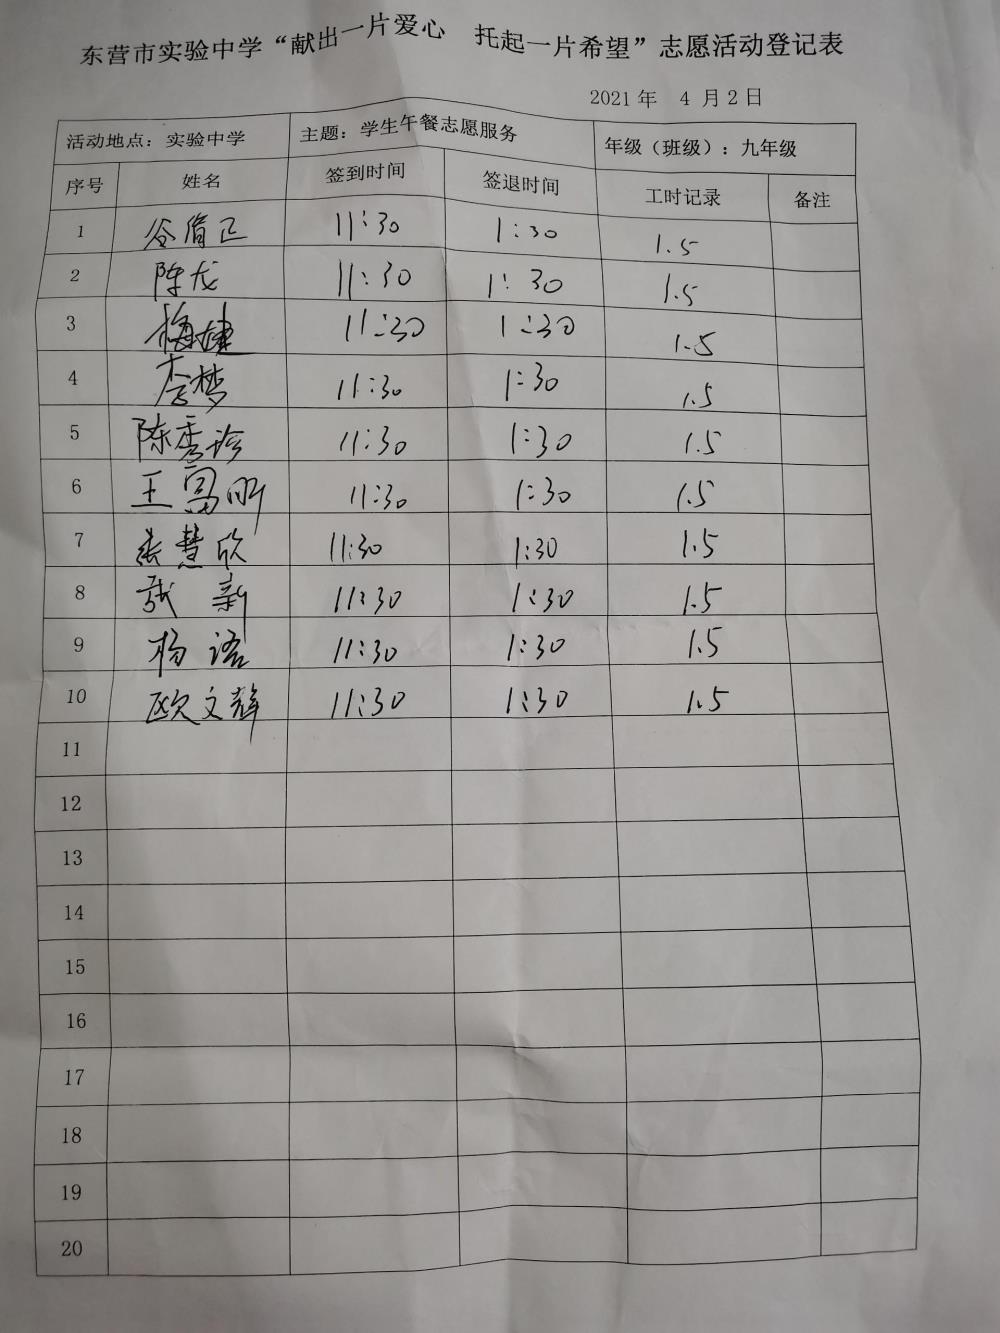 东营市实验中学“献出一片爱心 托起一片希望”志愿活动登记表
2021年 4月2日
活动地点：实验中学 主题：学生午餐志愿服务 年级（班级）：九年级
序号 姓名 签到时间 签退时间 工时记录 备注
1 谷 正 11:30 1:30 1.5
2 陈龙 11:30 1:30 1.5
3 梅婕 11:30 1:30 1.5
4 李梦 11:30 1:30 1.5
5 陈秀珍 11:30 1:30 1.5
6 王富刚 11:30 1:30 1.5
7 张慧欣 11:30 1:30 1.5
8 张新 11:30 1:30 1.5
9 杨语 11:30 1:30 1.5
10 欧文静 11:30 1:30 1.5
11
12
13
14
15
16
17
18
19
20